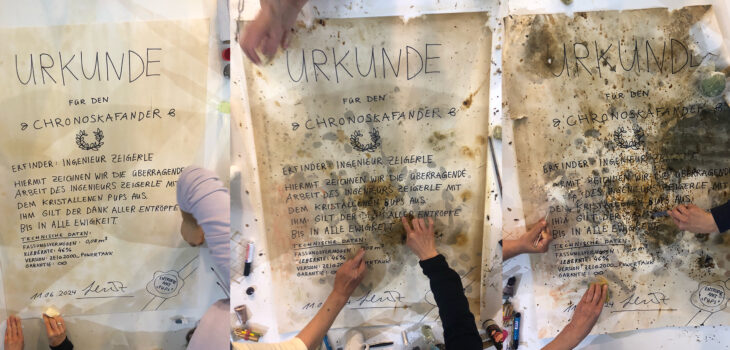 URKUNDE
FÜR DEN
CHRONOSKAFANDER
ERFINDER: INGENIEUR ZEIGERLE
HIERMIT ZEICHNEN WIR DIE ÜBERRAGENDE
ARBEIT DES INGENIEURS ZEIGERLE MIT
DEM KRISTALLENEN PUPS AUS.
IHM GILT DER DANK ALLER ENTROPIE
BIS IN ALLE EWIGKEIT.
TECHNISCHE DATEN:
FASSUNGSVERMÖGEN:
KLEBERATE: 46%
VERSION:
GARANTIE: ∞
11.06.2024
URKUNDE
FÜR DEN
CHRONOSKAFANDER
ERFINDER: INGENIEUR ZEIGERLE
HIERMIT ZEICHNEN WIR DIE ÜBERRAGENDE
ARBEIT DES INGENIEURS ZEIGERLE MIT
DEM KRISTALLENEN PUPS AUS.
IHM GILT DER DANK ALLER ENTROPIE
BIS IN ALLE EWIGKEIT.
TECHNISCHE DATEN:
FASSUNGSVERMÖGEN:
KLEBERATE: 46%
VERSION:
GARANTIE: ∞
URKUNDE
FÜR DEN
CHRONOSKAFANDER
ERFINDER: INGENIEUR ZEIGERLE
HIERMIT ZEICHNEN WIR DIE
ARBEIT DES INGENIEURS
DEM KRISTALLENEN
IHM GILT DER
BIS IN ALLE
TECHNISCHE DATEN:
FASSUNGSVERMÖGEN:
KLEBERATE: 46%
VERSION:
GARANTIE: ∞